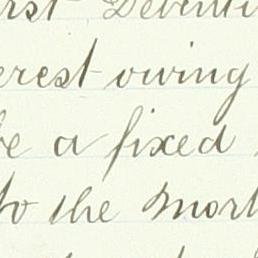 rst Debenti
erest owing
be a fixed
to the Mort